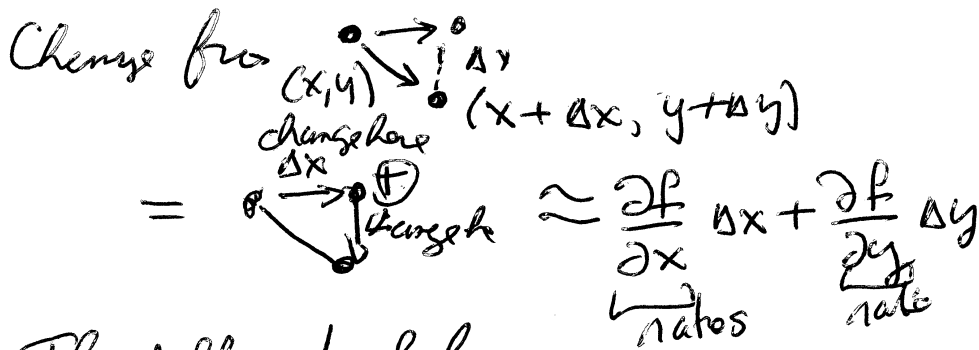 Change from
Δy
(x,y) (x+Δx, y+Δy)
change here
Δx
= ⊕ change he ≈ ∂f/∂x Δx + ∂f/∂y Δy
rates rate